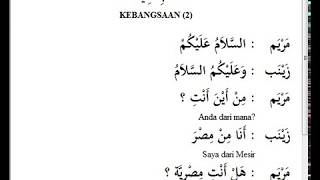 KEBANGSAAN (2)
مَرْيَم : السَّلاَمُ عَلَيْكُمْ
زَيْنَب : وَعَلَيْكُمُ السَّلاَمُ
مَرْيَم : مِنْ أَيْنَ أَنْتِ ؟
Anda dari mana?
زَيْنَب : أَنَا مِنْ مِصْرَ
Saya dari Mesir
مَرْيَم : هَلْ أَنْتِ مِصْرِيَّة ؟